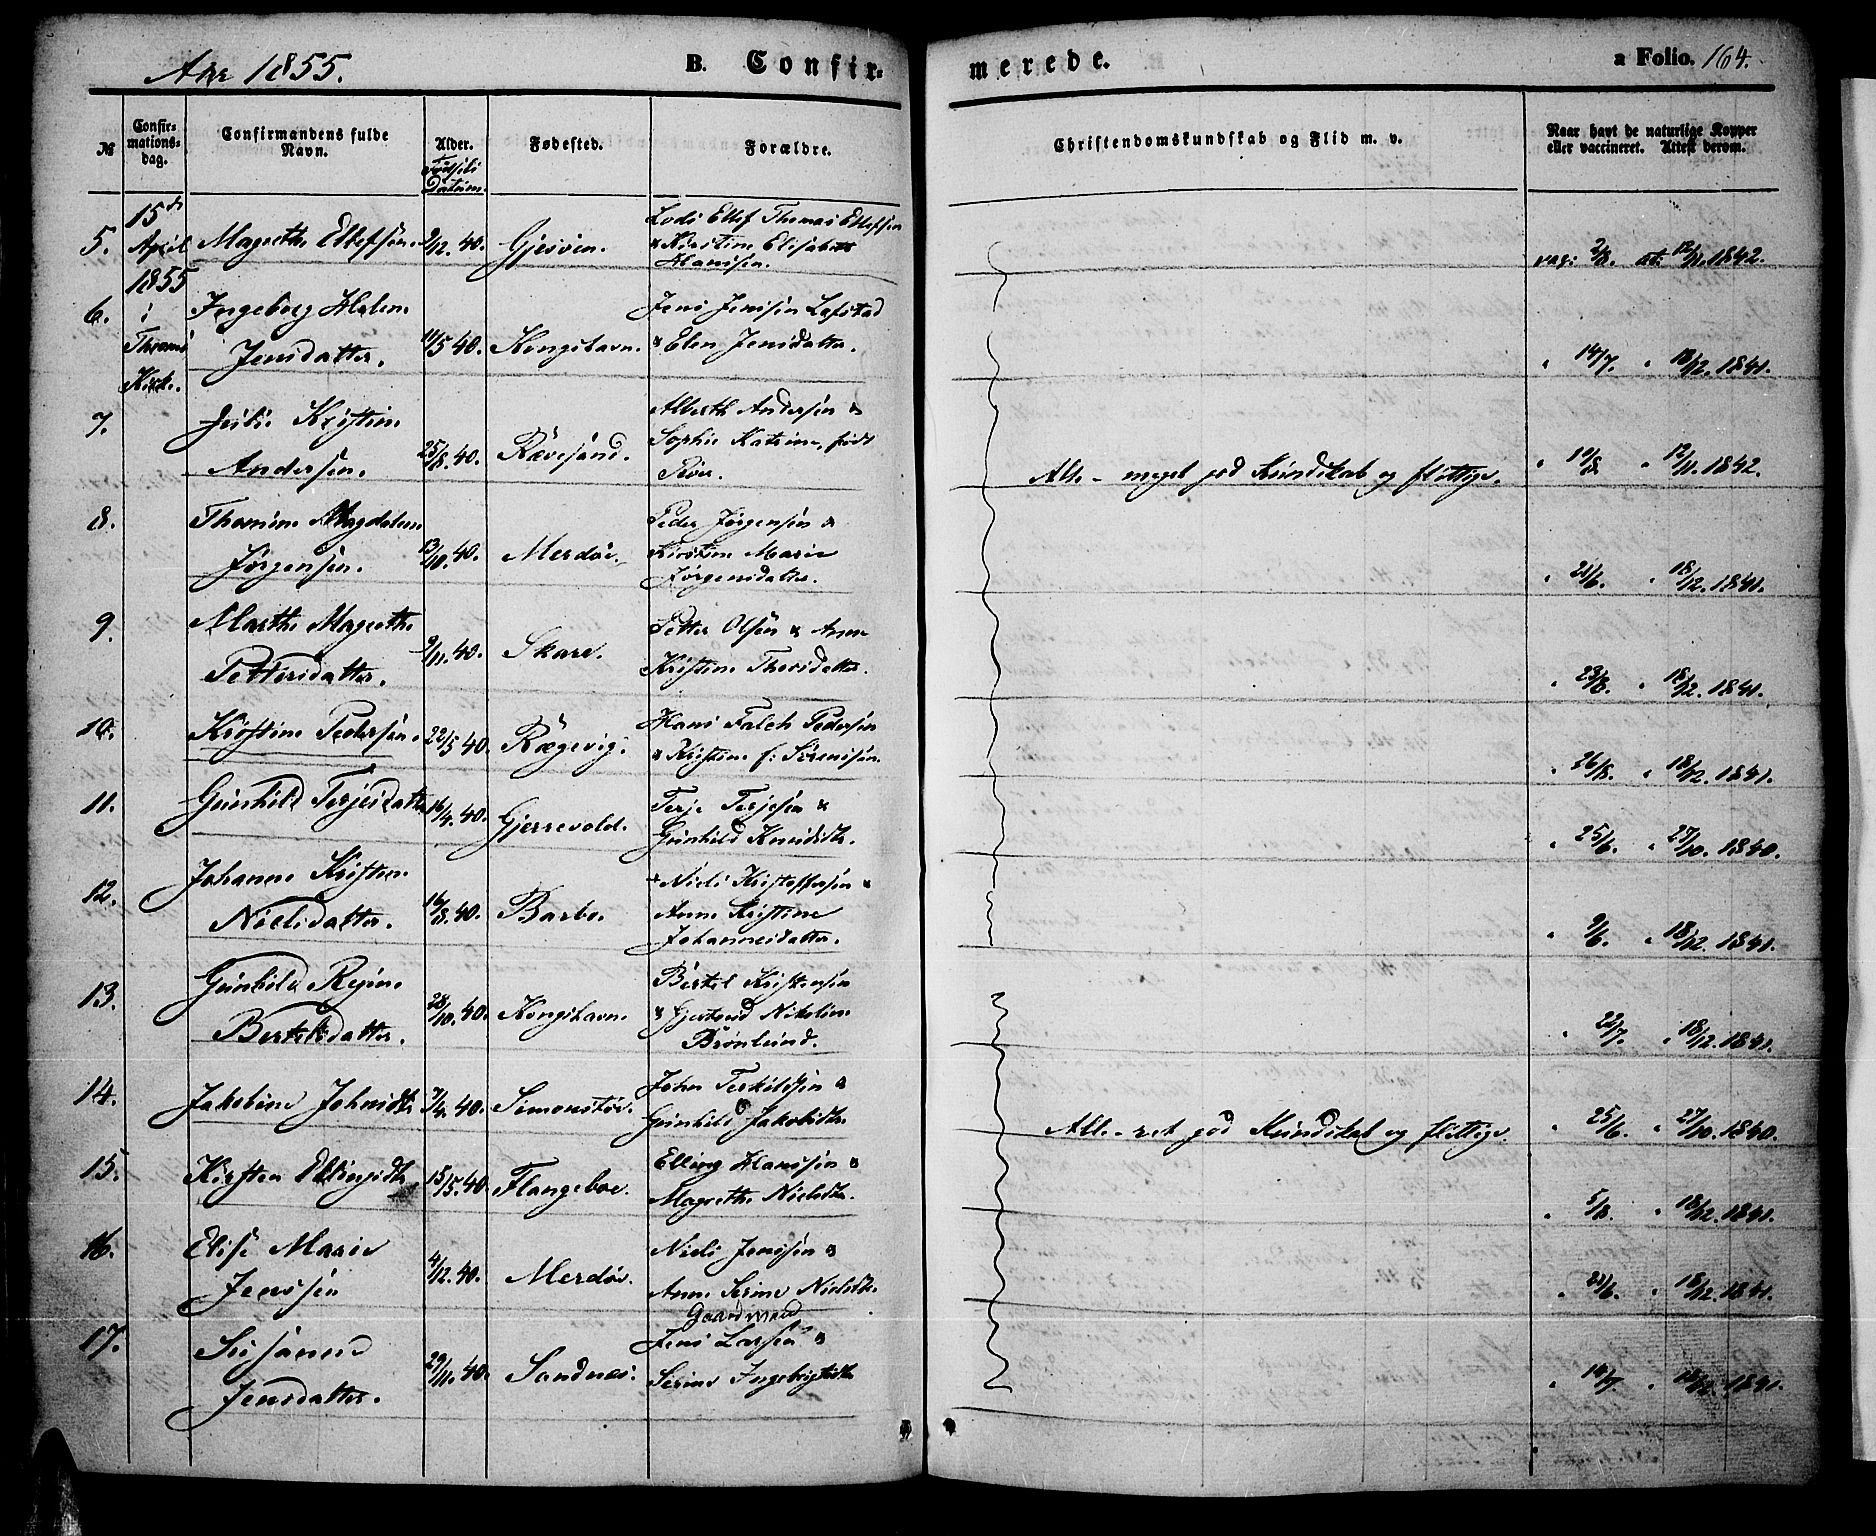 Aar 1855.
B. Confir-
merede.
a Folio. 164.
№
Confirmationsdag.
Confirmandens fulde Navn.
Alder.
Fødsels Datum.
Fødested.
Forældre.
Christendomskundskab og Flid m. v.
Naar havt de naturlige Kopper eller vaccineret. Attest derom.
15de April 1855 i Thromø Kirk.
5. Magrethe Ellefsen. 9/12. 40. Gjesøen. Lods Ellef Thomas Ellefsen
& Kirstine Elisabeth
Hanssen. vac: 2/8. at: 12/11. 1842.
6. Ingeborg Helene
Jensdatter. 11/5 40. Kongshavn. Jens Jenssen Lofstad
& Elen Jensdatter. " 14/7. " 18/12. 1841.
7. Julie Kristine
Andersen. 25/8. 40. Rævesand. Alberth Andersen &
Sophie Katrine, født
Röer. Alle - meget god Kundskab og flittige. " 10/8. " 12/11. 1842.
8. Thomine Magdalene
Jørgensen. 13/10. 40. Merdöe. Peder Jørgensen &
Kirstine Marie
Jørgensdatter. " 21/6. " 18/12. 1841.
9. Marthe Magrethe
Pettersdatter. 9/11. 40. Skare. Petter Olsen & Anne
Kristine Thorsdatter. " 23/8. " 18/12. 1841.
10. Kristine Pedersen. 22/5 40. Rægevig. Hans Falch Pedersen
& Kristine f: Sørenssen. " 26/8. " 18/12. 1841.
11. Gunhild Terjesdatter 16/4. 40. Gjerrevold. Terje Terjesen &
Gunhild Knudsdtr. " 25/6. " 27/10. 1840.
12. Johanne Kristine
Nielsdatter. 16/8. 40. Barbo. + Niels Kristoffersen &
Anne Kristine
Johannesdatter. " 9/6. " 18/12. 1841.
13. Gunhild Regine
Bertelsdatter. 28/10. 40. Kongshavn. Bertel Kristensen
& Gjertrud Nikoline
Brønlund. " 22/7. " 18/12. 1841.
14. Jakobine Johnsdtr. 7/4. 40. Simonstöe. John Terkildsen &
Gunhild Jakobsdtr. Alle - ret god Kundskab og flittige. " 25/6. " 27/10. 1840.
15. Kirsten Ellingsdtr. 15/5. 40. Flangeboe. Elling Hanssen &
Magrethe Nielsdtr. " 5/8. " 18/12. 1841.
16. Elise Marie
Jenssen 4/12. 40. Merdöe. Niels Jenssen &
Anne Serine Nielsdtr. " 21/6. " 18/12. 1841.
17. Susanne
Jensdatter. 29/11. 40. Sandnæs. Gaardmand
Jens Larsen &
Serine Ingebrigtsdtr. " 14/7. " 18/12. 1841.